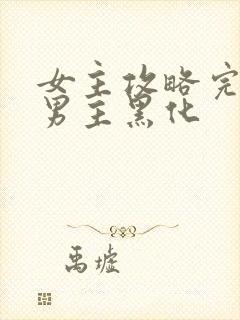 女主攻略完
男主黑化
禹墟